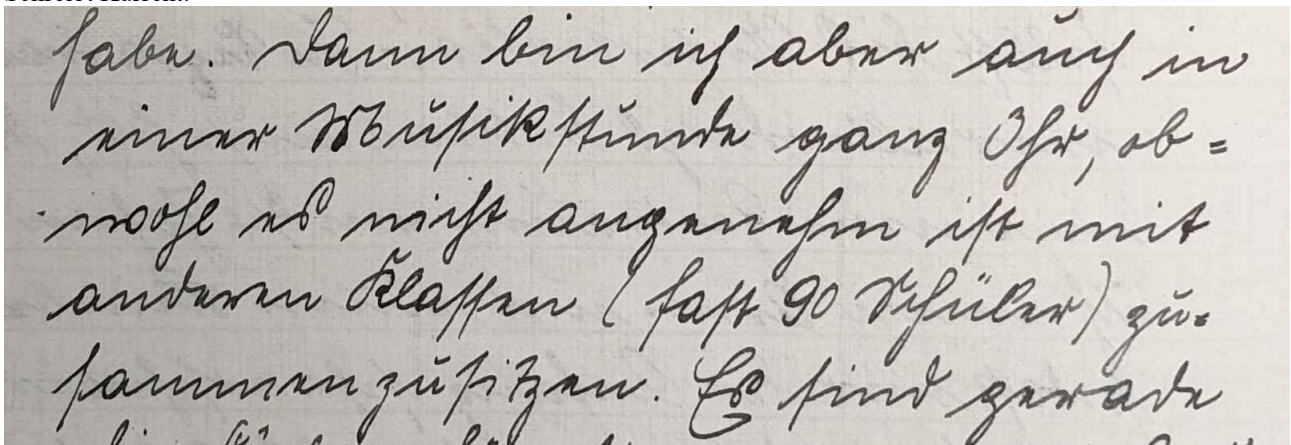 habe. Dann bin ich aber auch in
einer Musikstunde ganz Ohr, ob=
wohl es nicht angenehm ist mit
anderen Klassen (fast 90 Schüler) zu=
sammenzusitzen. Es sind gerade